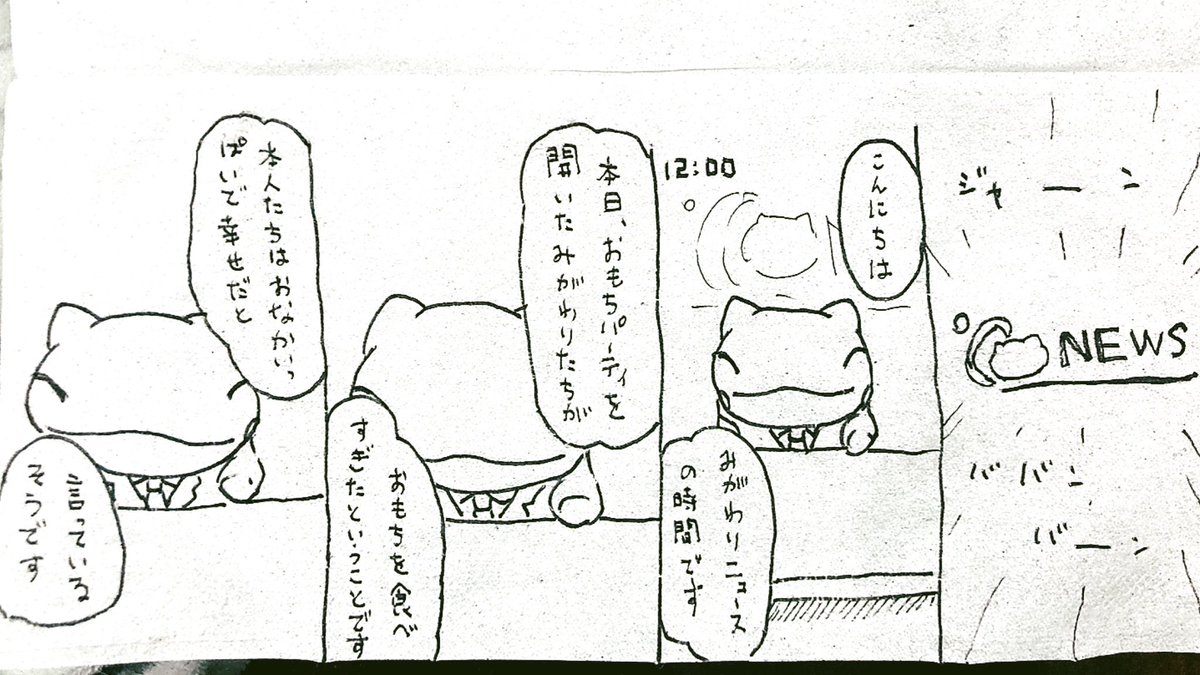 ジャーン
NEWS
ババン
バーン
こんにちは
12:00
みがわりニュース
の時間です
本日、おもちパーティを
開いたみがわりたちが
おもちを食べ
すぎたということです
本人たちはおなかいっ
ぱいで幸せだと
言っている
そうです